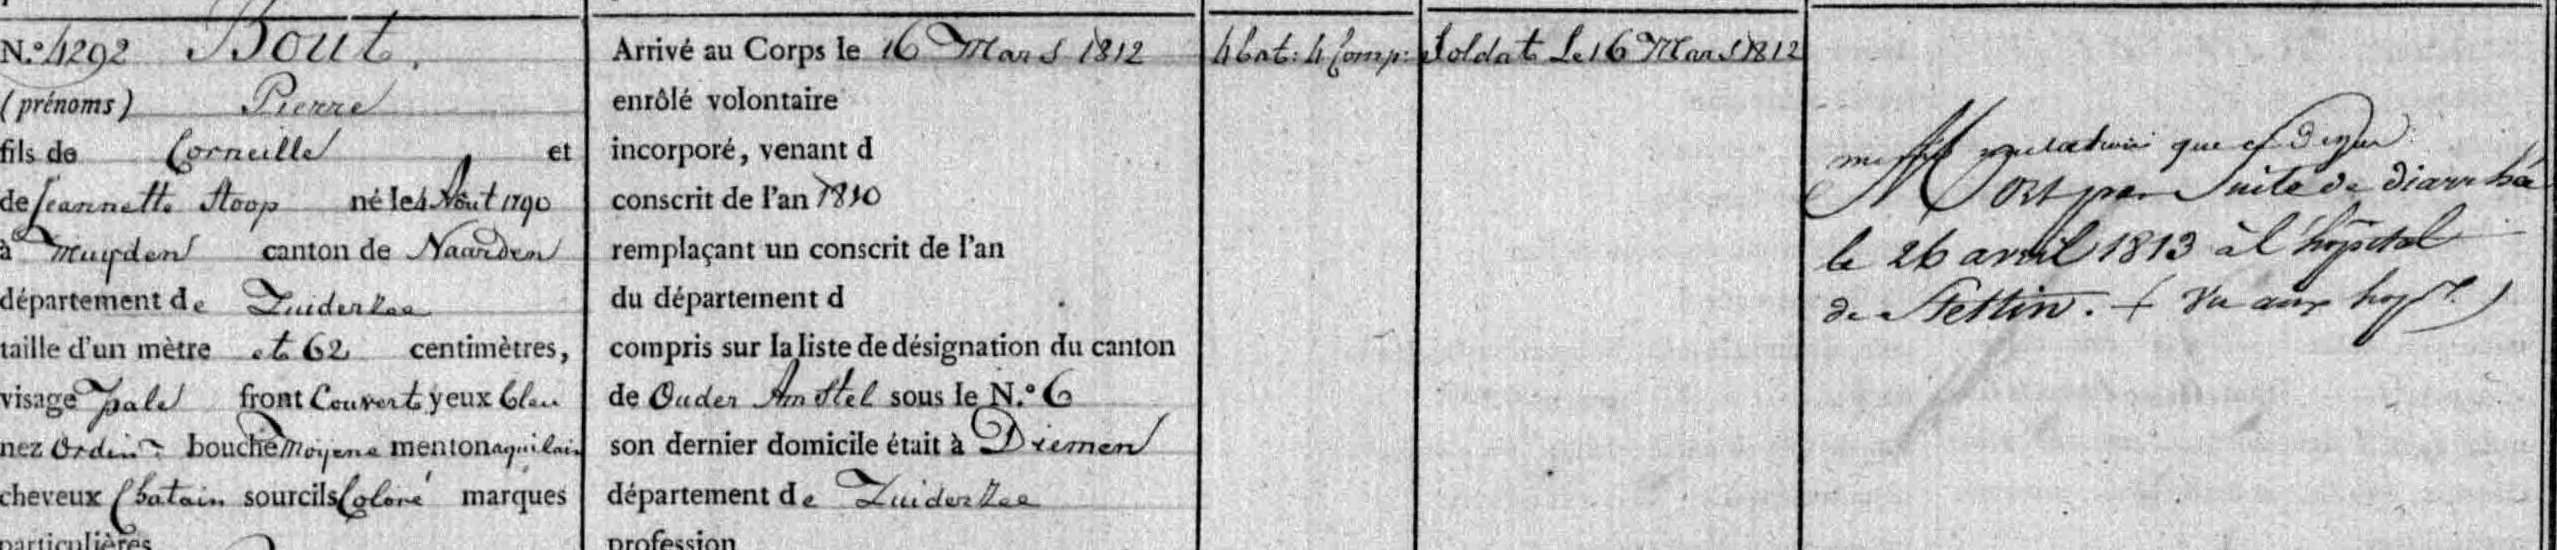 N.º 4292 Bout.
(prénoms) Pierre
fils de Corneille et
de Jeannette Stoop né le 4 Aout 1790
à Muyden canton de Naarden
département de Zuiderzee
taille d'un mètre et 62 centimètres,
visage pale front Couvert yeux bleu
nez Ordinr bouche Moyene menton aquilain
cheveux Chatain sourcils Coloré marques
particulières
Arrivé au Corps le 16 Mars 1812
enrôlé volontaire
incorporé, venant d
conscrit de l'an 1810
remplaçant un conscrit de l'an
du département d
compris sur la liste de désignation du canton
de Ouder Amstel sous le N.º 6
son dernier domicile était à Diemen
département de Zuiderzee
profession
4 bat: 4 Comp:
Soldat Le 16 Mars 1812
que
Mort par Suite de diarrhée
le 26 avril 1813 à l'hôpital
de Stettin. + Vu aux